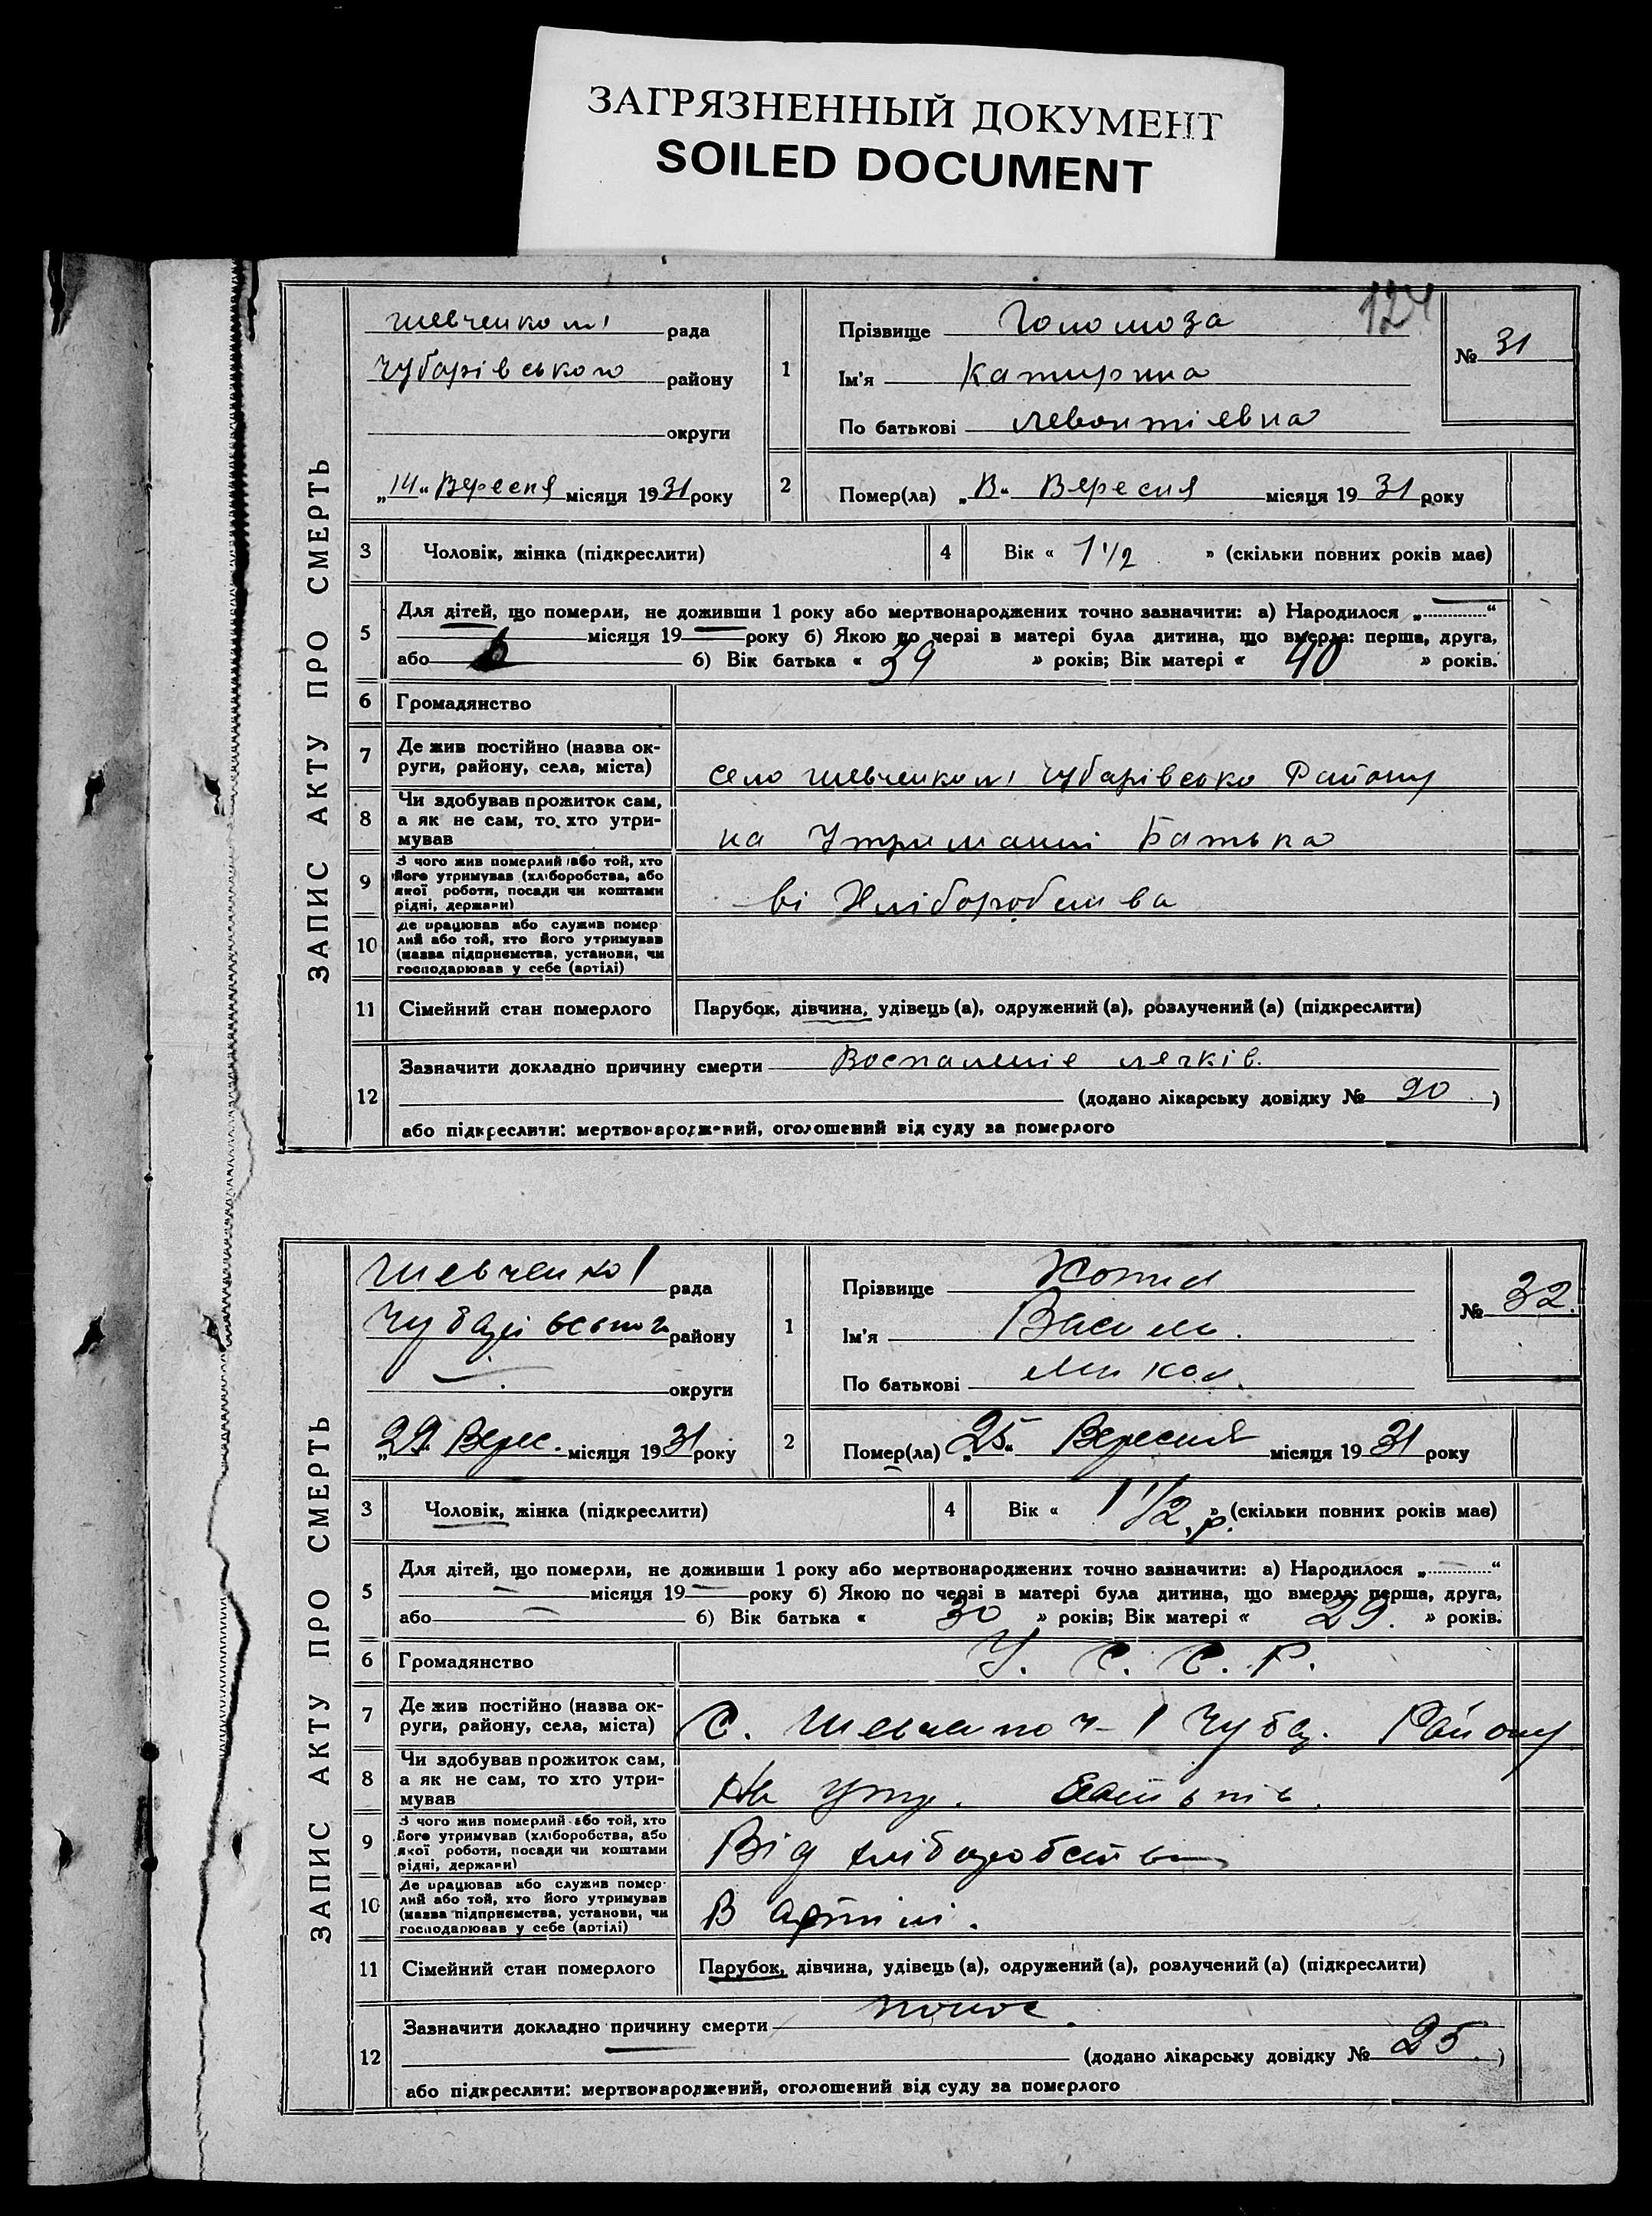 ЗАГРЯЗНЕННЫЙ ДОКУМЕНТ
SOILED DOCUMENT
124
ЗАПИС АКТУ ПРО СМЕРТЬ
рада
Чубарівського району
округи
„14“ Вересня місяця 1931 року
1
Прізвище Голомоза
Ім'я Катирина
По батькові Левонтіевна
№ 31
2
Помер(ла) Вересня місяця 1931 року
3 Чоловік, жінка (підкреслити)
4 Вік « 1 1/2 » (скільки повних років має)
5 Для дітей, що померли, не доживши 1 року або мертвонароджених точно зазначити: а) Народилося „
місяця 19 року б) Якою по черзі в матері була дитина, що вмерла: перша, друга,
або 6) Вік батька « 39 » років; Вік матері « 40 » років.
6 Громадянство
7 Де жив постійно (назва ок-
руги, району, села, міста)
село Чубарівсько Району
8 Чи здобував прожиток сам,
а як не сам, то хто утри-
мував
на Утриманні Батька
9 З чого жив померлий або той, хто
його утримував (хліборобства, або
якої роботи, посади чи коштами
рідні, держави)
ві Хліборобства
10 Де працював або служив помер-
лий або той, хто його утримував
(назва підприємства, установи, чи
господарював у себе (артілі)
11 Сімейний стан померлого
Парубок, дівчина, удівець (а), одружений (а), розлучений (а) (підкреслити)
12 Зазначити докладно причину смерти Воспаленіе легків.
(додано лікарську довідку № 90)
або підкреслити: мертвонароджений, оголошений від суду за померлого
ЗАПИС АКТУ ПРО СМЕРТЬ
Шевченко 1 рада
району
округи
„29“ Верес. місяця 1931 року
1
Прізвище
Ім'я Василь.
По батькові Микол.
№ 32.
2
Помер(ла) „25“ Вересня місяця 1931 року
3 Чоловік, жінка (підкреслити)
4 Вік « 1 1/2 р. » (скільки повних років має)
5 Для дітей, що померли, не доживши 1 року або мертвонароджених точно зазначити: а) Народилося „ “
місяця 19 року б) Якою по черзі в матері була дитина, що вмерла: перша, друга,
або 6) Вік батька « 30 » років; Вік матері « 29. » років.
6 Громадянство
У. С. С. Р.
7 Де жив постійно (назва ок-
руги, району, села, міста)
С. Чубар. Району
8 Чи здобував прожиток сам,
а як не сам, то хто утри-
мував
На утр. Батьків.
9 З чого жив померлий або той, хто
його утримував (хліборобства, або
якої роботи, посади чи коштами
рідні, держави)
Від хліборобства
10 Де працював або служив помер-
лий або той, хто його утримував
(назва підприємства, установи, чи
господарював у себе (артілі)
В артілі.
11 Сімейний стан померлого
Парубок, дівчина, удівець (а), одружений (а), розлучений (а) (підкреслити)
12 Зазначити докладно причину смерти понос.
(додано лікарську довідку № 25.)
або підкреслити: мертвонароджений, оголошений від суду за померлого